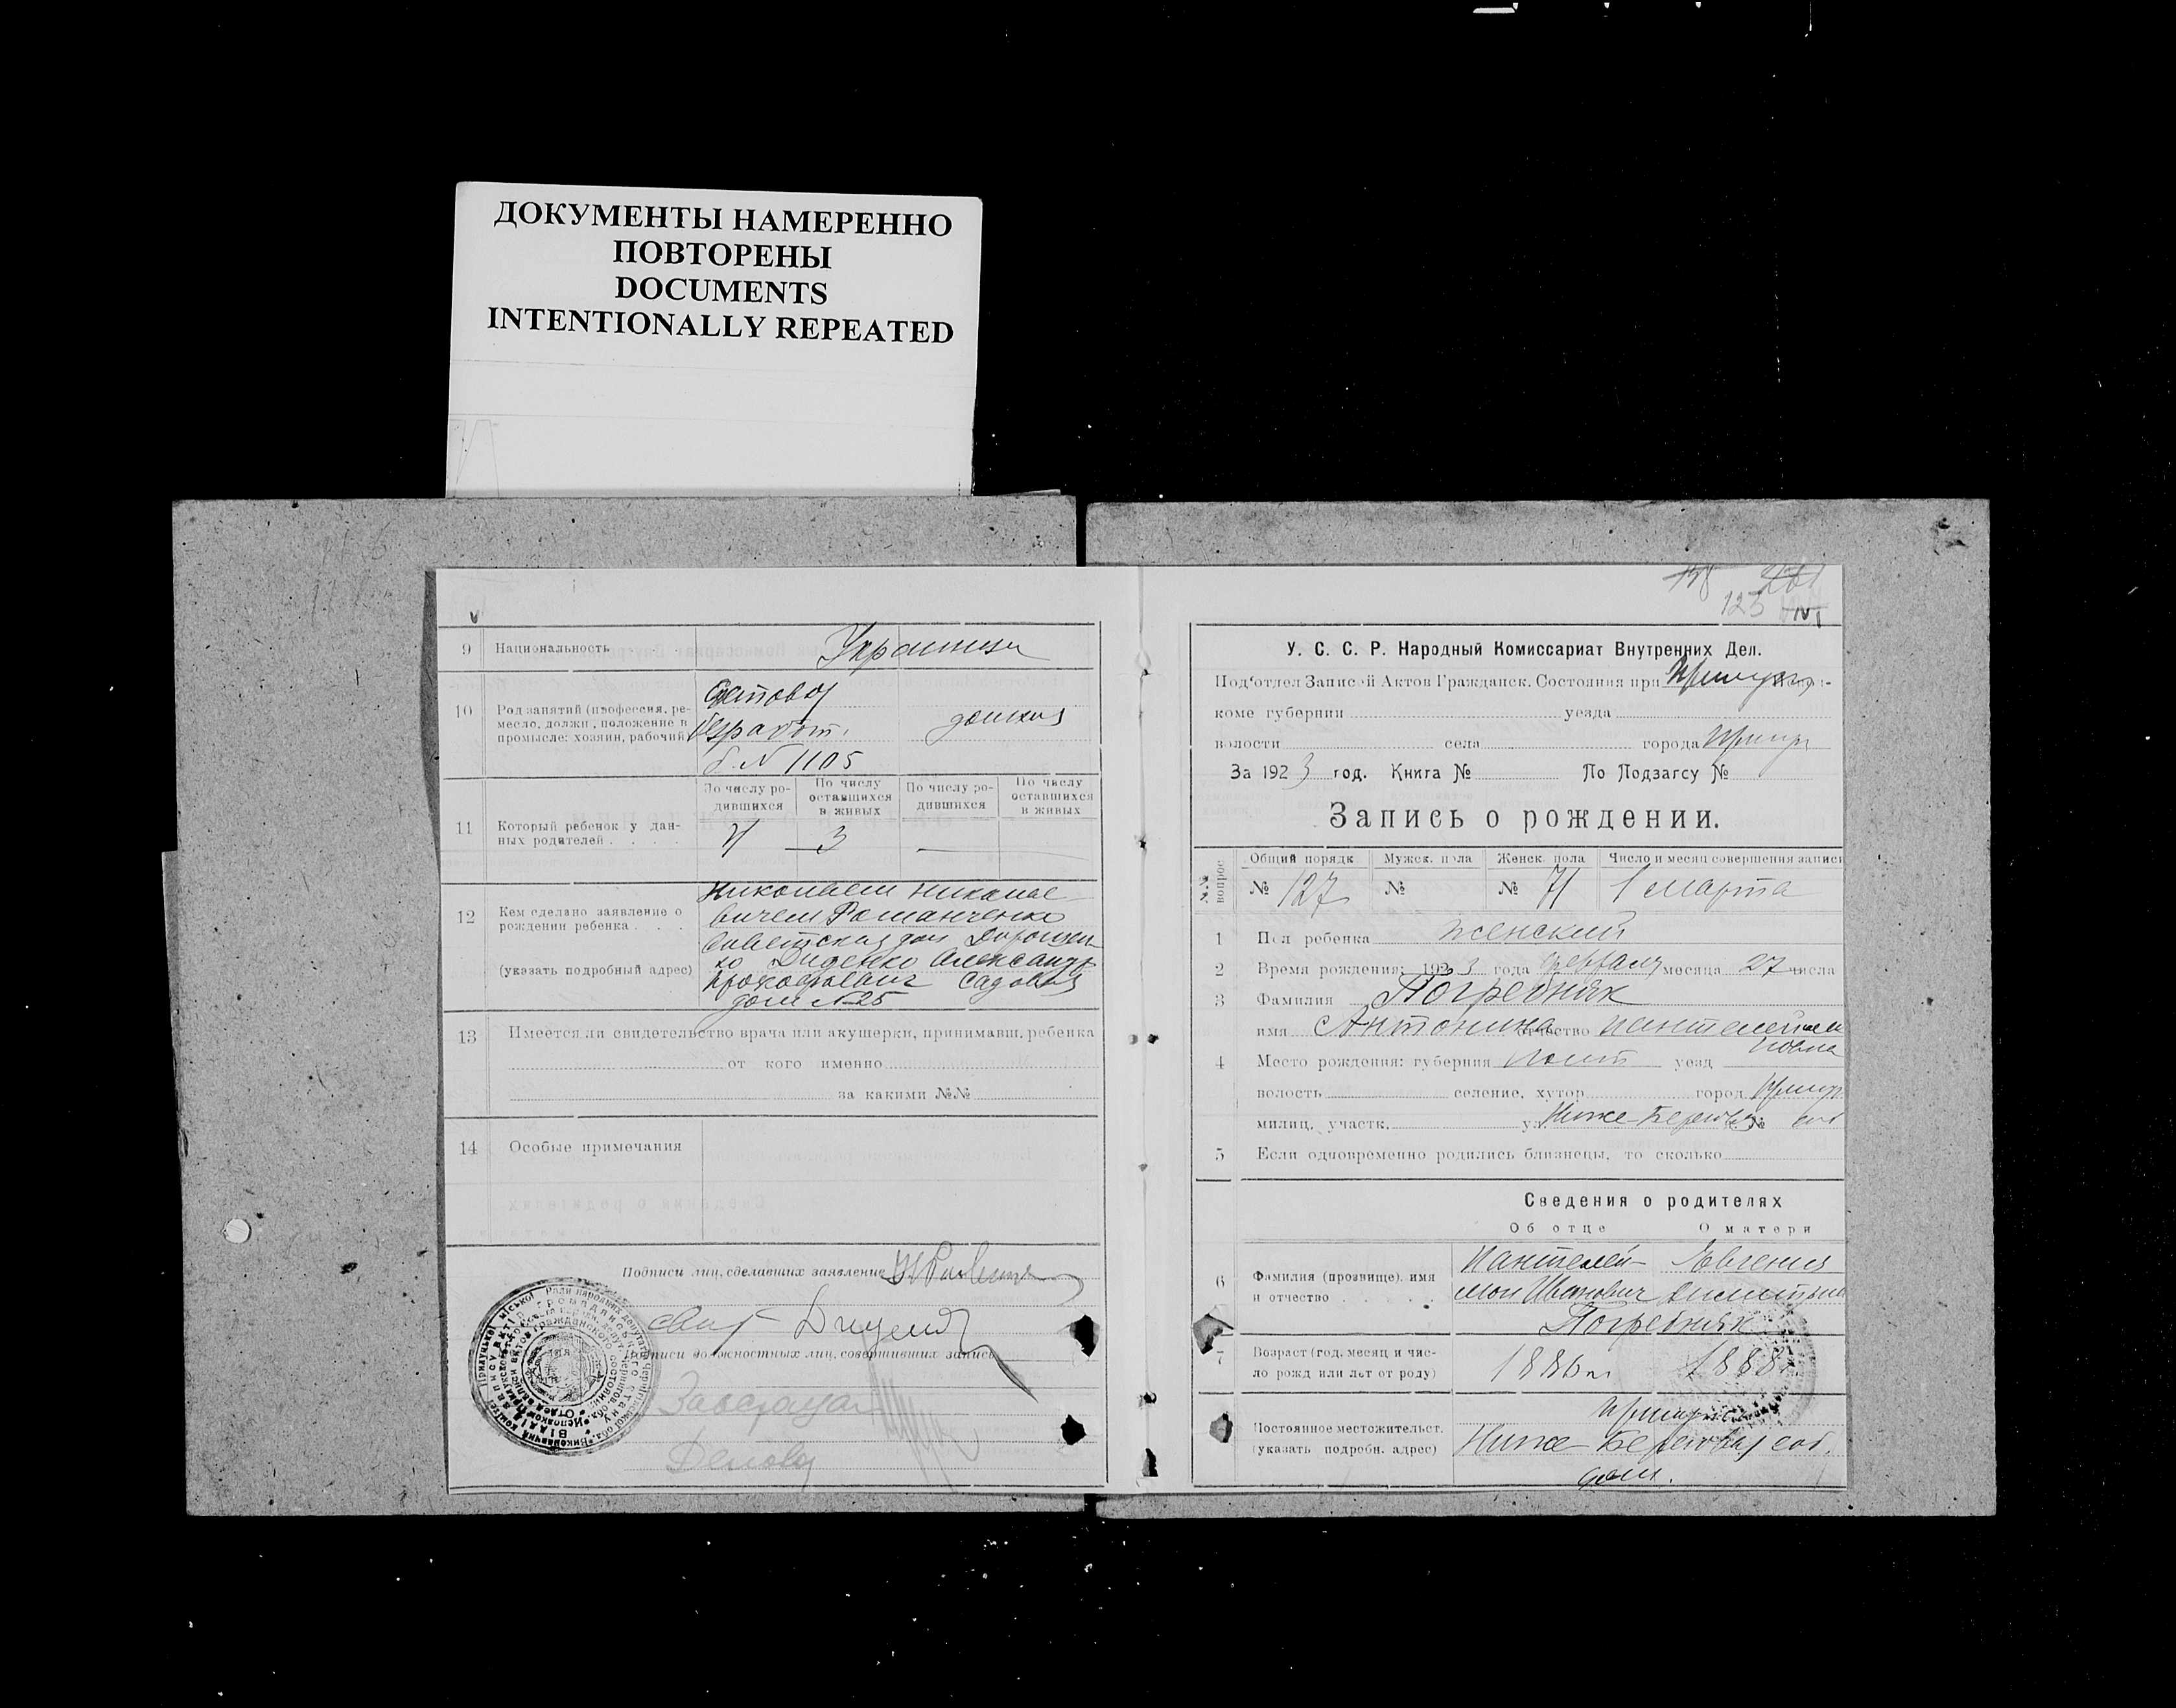 ДОКУМЕНТЫ НАМЕРЕННО
ПОВТОРЕНЫ
DOCUMENTS
INTENTIONALLY REPEATED
9 Национальность Украинцы
10 Род занятий (профессия, ре-
месло, должн., положение в
промысле: хозяин, рабочий)
Счетовод
безработ.
б. № 1105
домхоз
11 Который ребенок у дан-
ных родителей . . . .
По числу ро-
дившихся
По числу
оставшихся
в живых
По числу ро-
дившихся
По числу
оставшихся
в живых
4 3 — —
12 Кем сделано заявление о
рождении ребенка . . .
(указать подробный адрес)
Николаем Николае
вичем Романченко
Советская дом Дорошен
ко Диденко Александр
Прокофьевич Садовая
дом № 25
13 Имеется ли свидетельство врача или акушерки, принимавш. ребенка
от кого именно
за какими №№
14 Особые примечания
Подписи лиц, сделавших заявление
Подписи должностных лиц, совершивших запись
Завед
Делов
123
У. С. С. Р. Народный Комиссариат Внутренних Дел.
Под'отдел Записей Актов Гражданск. Состояния при Прилуцк
коме губернии уезда
волости села города Прилук
За 1923 год. Книга № По Подзагсу №
Запись о рождении.
№№ вопрос.
Общий порядк. Мужск. пола Женск. пола Число и месяц совершения записи
№ 127 № № 71 1 марта
1 Пол ребенка женский
2 Время рождения: 1923 года февраля месяца 27 числа
3 Фамилия Погребняк
имя Антонина отчество Пантелеймо
новна
4 Место рождения: губерния Полт уезд
волость селение, хутор город Прилук
милиц. участк. ул. Ниже-Береговая № соб
5 Если одновременно родились близнецы, то сколько
Сведения о родителях
Об отце О матери
6 Фамилия (прозвище), имя
и отчество . . . . .
Пантелей- Евгения
мон Иванович
Погребняк
7 Возраст (год, месяц и чис-
ло рожд. или лет от роду)
1886 1888
Постоянное местожительст.
(указать подробн. адрес)
Прилуки
Ниже-Береговая соб.
дом.